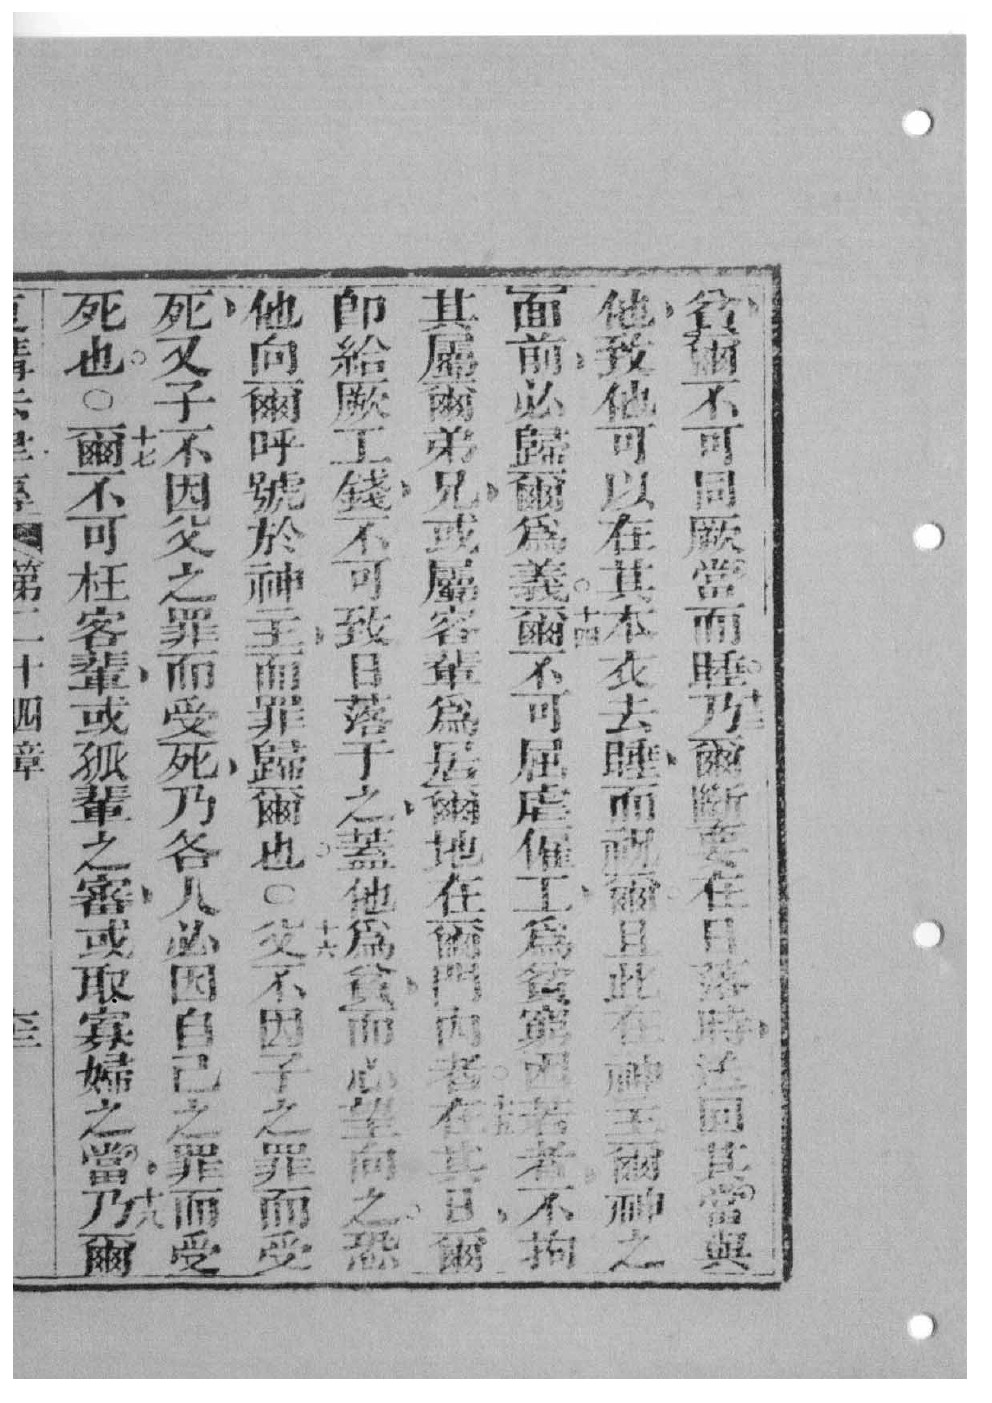 貧、爾不可同厥當而睡。十三乃爾斷要在日落時、送回其當。與
他、致他可以在其本衣去睡、而祝爾。且此在神主爾神之
面前、必歸爾爲義。十四爾不可屈虐僱工、爲貧窮困苦者、不拘
其屬爾弟兄、或屬客輩爲居爾地在爾門內者。十五在其日、爾
即給厥工錢、不可致日落于之、蓋他爲貧、而心望向之。恐
他向爾呼號於神主、而罪歸爾也。○十六父不因子之罪而受
死、又子不因父之罪而受死、乃各人必因自己之罪而受
死也。○十七爾不可枉客輩、或孤輩之審、或取寡婦之當、十八乃爾
第二十四章